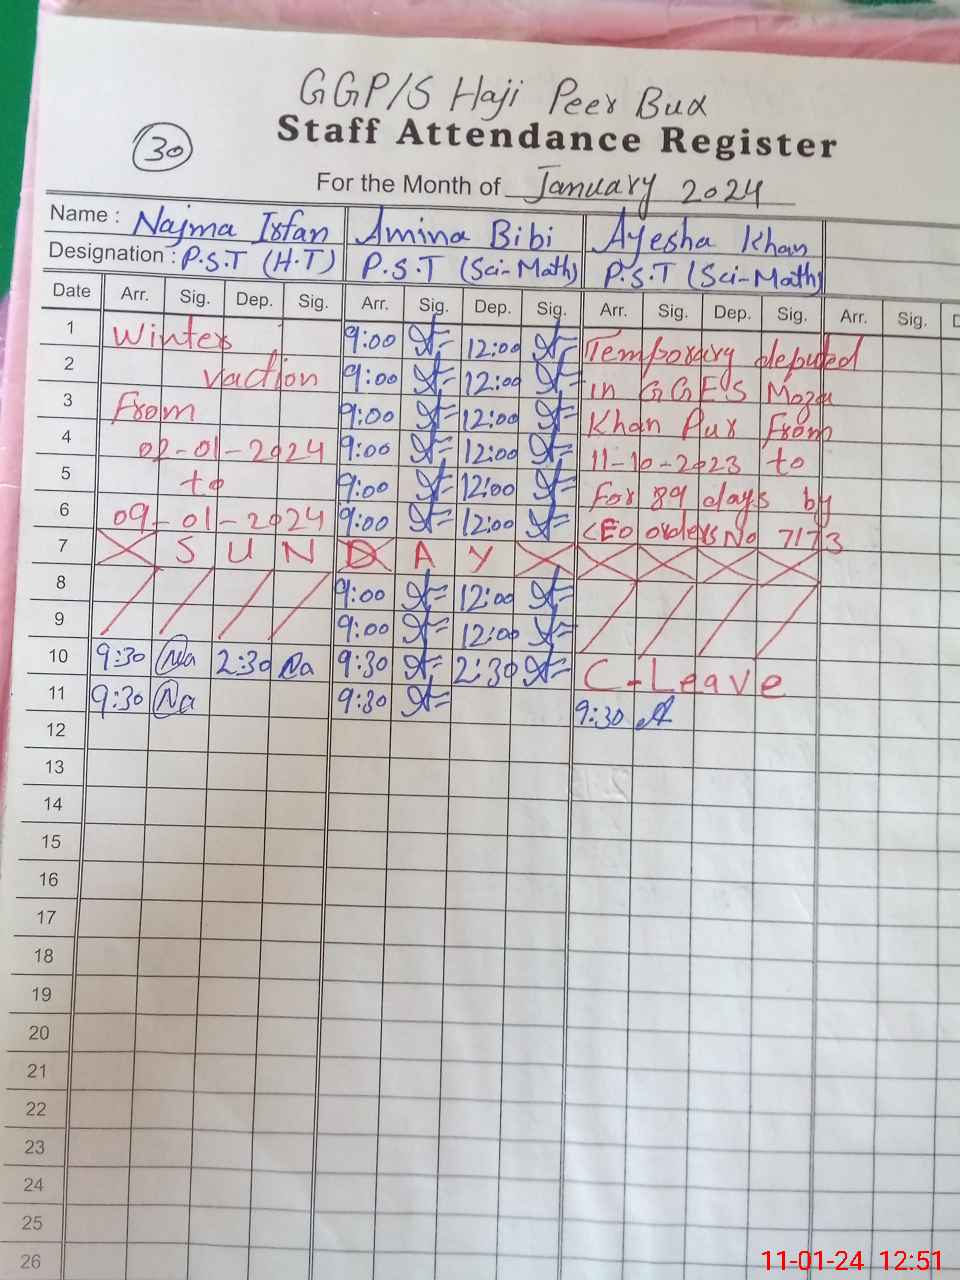 GGP/S Haji Peer Bux
Staff Attendance Register
30
For the Month of January 2024
Name : Najma Irfan Amina Bibi Ayesha Khan
Designation : P.S.T (H.T) P.S.T (Sci-Math) P.S.T (Sci-Math)
Date Arr. Sig. Dep. Sig. Arr. Sig. Dep. Sig. Arr. Sig. Dep. Sig. Arr. Sig. D
1 Winter 9:00 12:00 Temporary deputed
2 vaction 9:00 12:00 in GGES Moza
3 From 9:00 12:00 Khan Pur From
4 02-01-2024 9:00 12:00 11-10-2023 to
5 to 9:00 12:00 For 89 days by
6 09-01-2024 9:00 12:00 CEO orders No 7173
7 S U N D A Y
8 9:00 12:00
9 9:00 12:00
10 9:30 Na 2:30 Na 9:30 2:30 C-Leave
11 9:30 Na 9:30 9:30
12
13
14
15
16
17
18
19
20
21
22
23
24
25
26
11-01-24 12:51